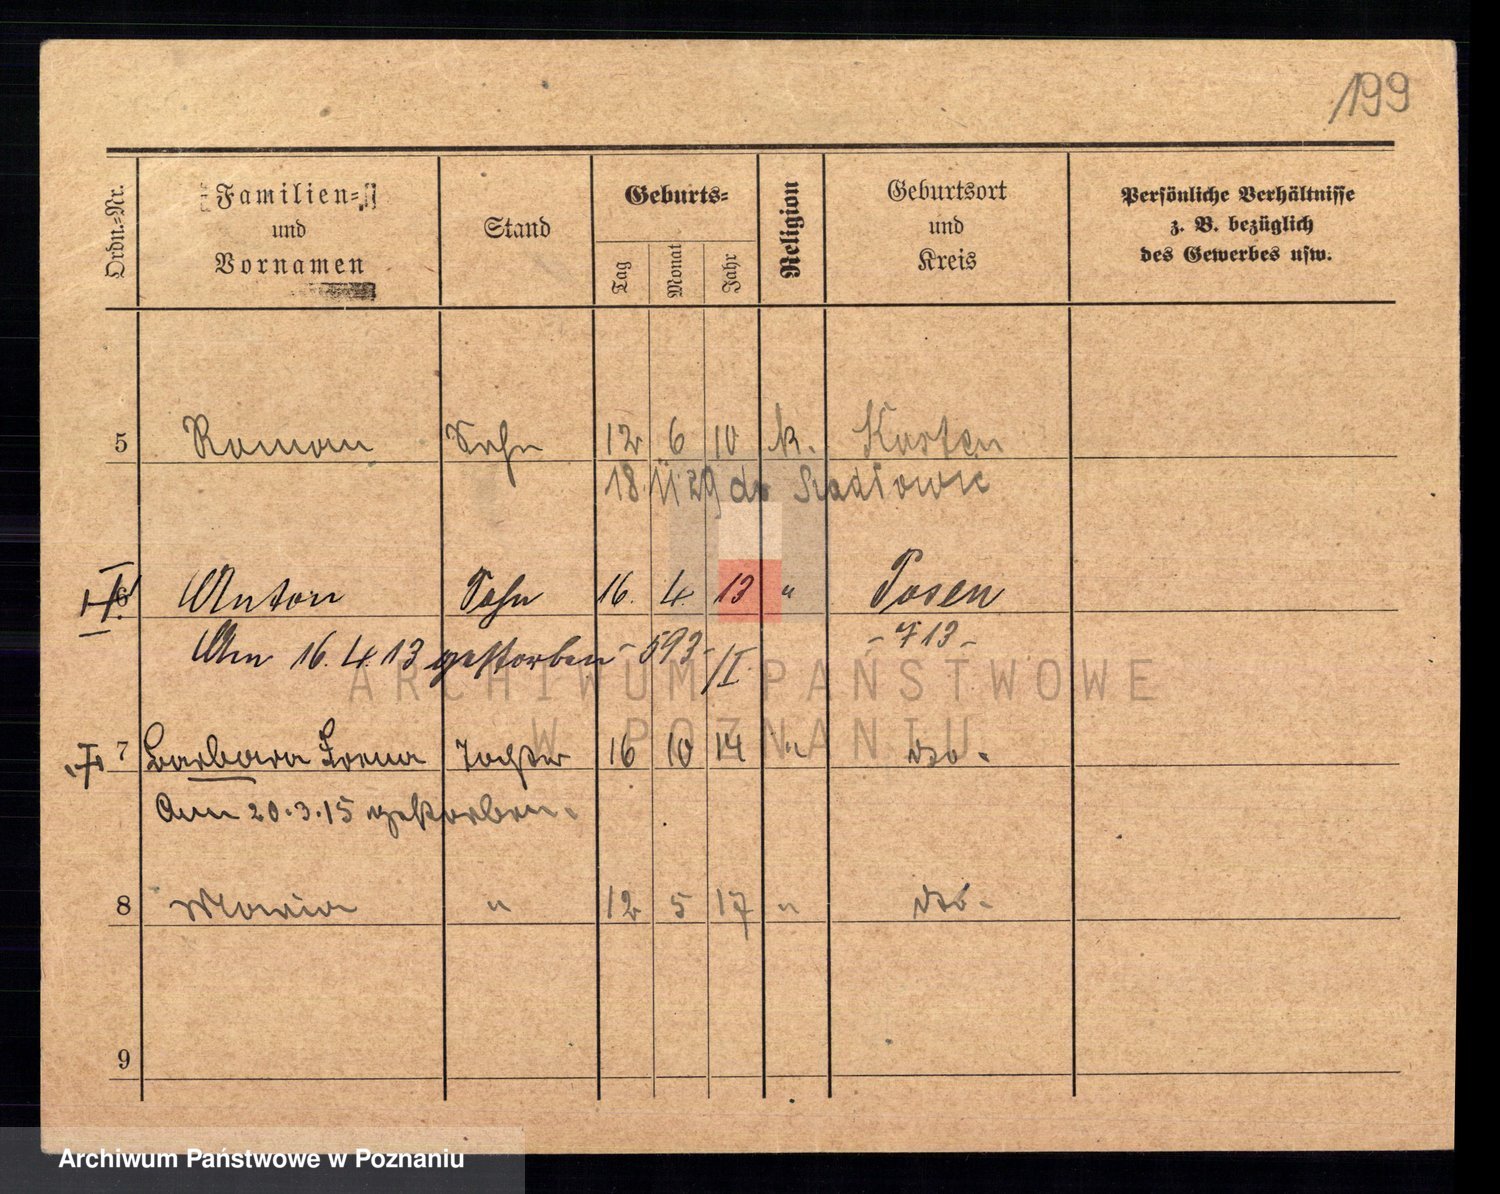 199
Ordn.-Nr.
Familien-
und
Vornamen
Stand
Geburts-
Tag
Monat
Jahr
Religion
Geburtsort
und
Kreis
Persönliche Verhältnisse
z. B. bezüglich
des Gewerbes usw.
5 Roman Sohn 12 6 10 k. Kosten
18 11 29 do
6 Anton Sohn 16. 4. 13 " Posen
Am 16.4.13 gestorben - 593 - /I. - 713 -
7 Barbara Irena Tochter 16 10 14 " dto.
Am 20.3.15 gestorben.
8 Maria " 12 5 17 " dto.
9
ARCHIWUM PAŃSTWOWE
W POZNANIU
Archiwum Państwowe w Poznaniu